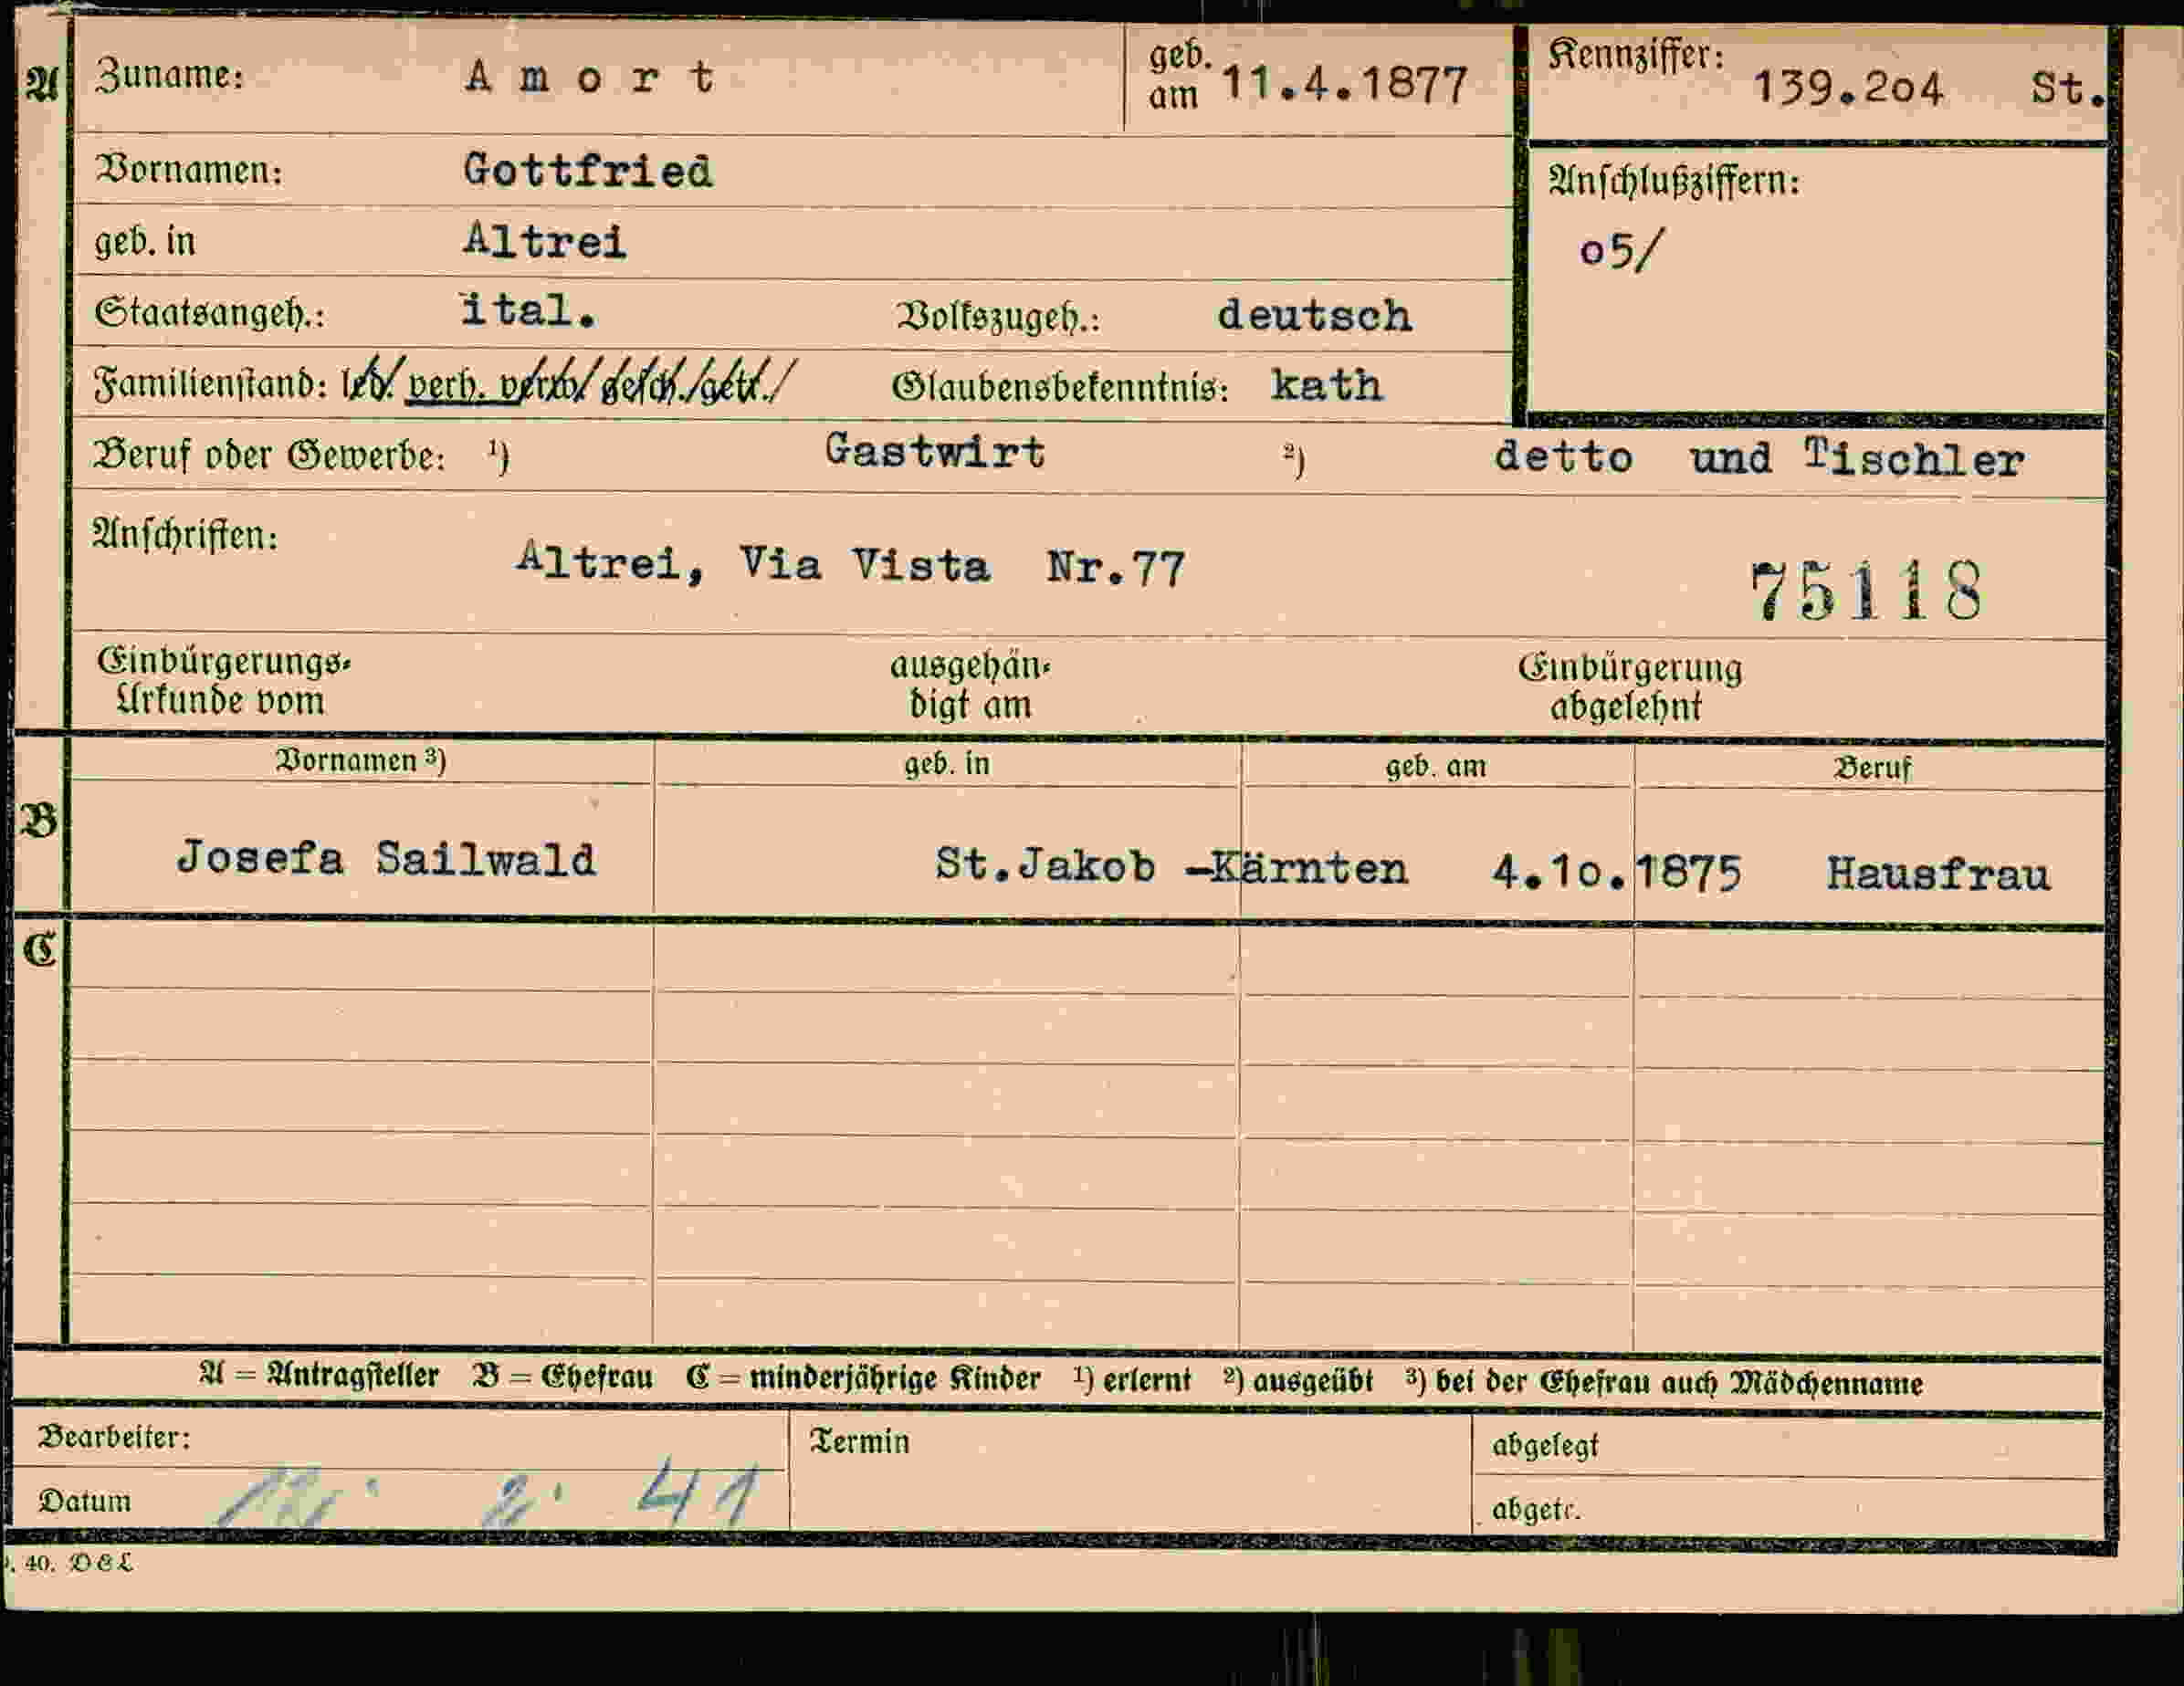 A Zuname: A m o r t geb. am 11.4.1877 Kennziffer: 139.2o4 St.
Vornamen: Gottfried Anschlußziffern:
geb. in Altrei o5/
Staatsangeh.: ital. Volkszugeh.: deutsch
Familienstand: led. verh. verw. gesch./getr./ Glaubensbekenntnis: kath
Beruf oder Gewerbe: 1) Gastwirt 2) detto und Tischler
Anschriften: Altrei, Via Vista Nr.77 75118
Einbürgerungs- ausgehän- Einbürgerung
Urkunde vom digt am abgelehnt
Vornamen 3) geb. in geb. am Beruf
B
Josefa Sailwald St.Jakob -Kärnten 4.1o.1875 Hausfrau
C
A = Antragsteller B = Ehefrau C = minderjährige Kinder 1) erlernt 2) ausgeübt 3) bei der Ehefrau auch Mädchenname
Bearbeiter: Termin abgelegt
Datum 2. 41 abgetr.
40. D & L